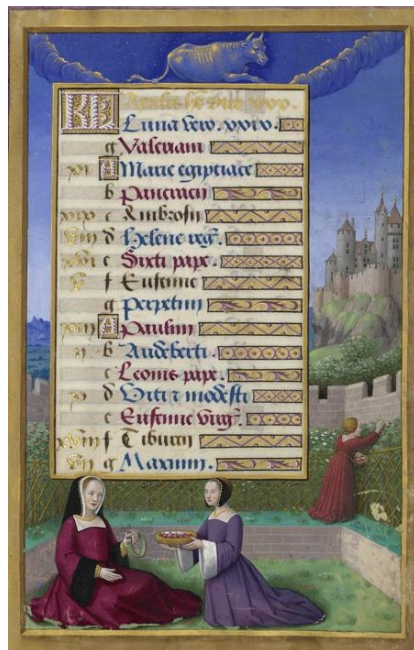 KL Aprilis ht dies xxx.
Luna vero. xxix.
g Valeriani
xi A Marie egiptiace
b Pancracii
xix c Ambrosii
viii d Helene reg.
e Sixti pape
f Eufemie
g Perpetuii
xiii A Paulini
ii b Audeberti.
c Leonis pape.
x d Viti ⁊ modesti
e Eufemie virg.
xviii f Tiburcii
vii g Maximi.